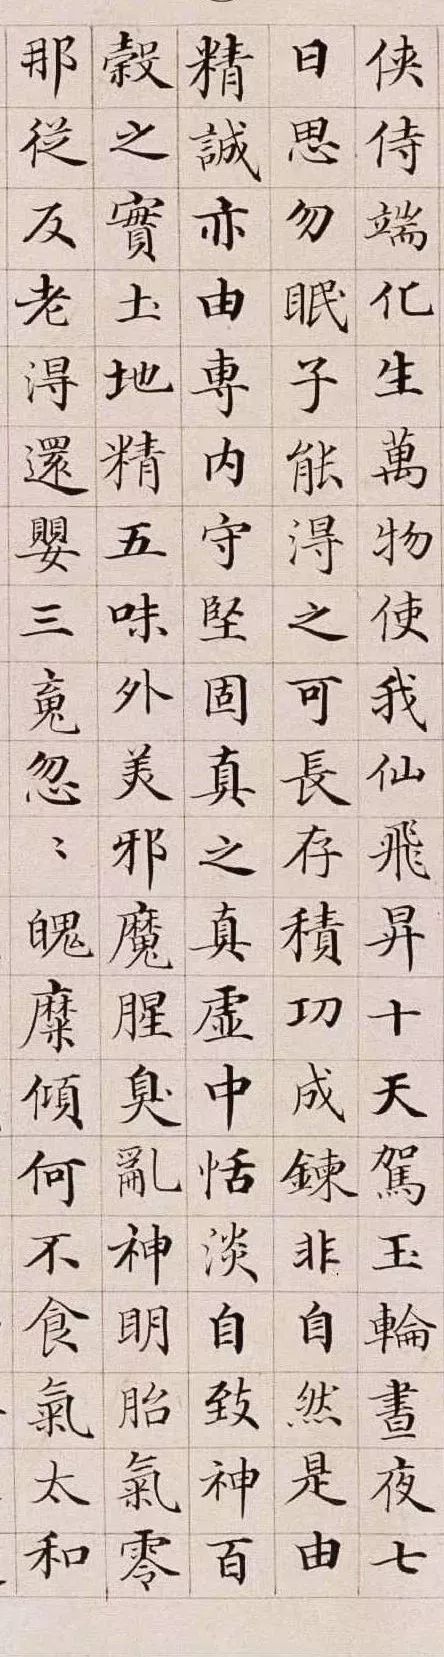 侠侍端化生萬物使我仙飛昇十天駕玉輪晝夜七
日思勿眠子能淂之可長存積功成鍊非自然是由
精誠亦由専内守堅固真之真虚中恬淡自致神百
穀之實土地精五味外美邪魔腥臭亂神明胎氣零
那従反老淂還嬰三䰟忽〻魄糜傾何不食氣太和